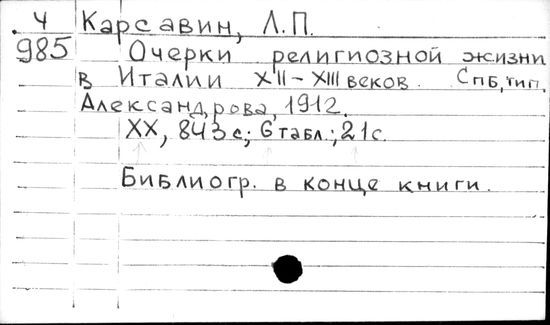 Ч Карсавин, Л.П.
985 Очерки религиозной жизни
в Италии XII-XIII веков. Спб, тип.
Александрова, 1912.
XX, 843 с; 6 табл.; 21 с.
Библиогр. в конце книги.